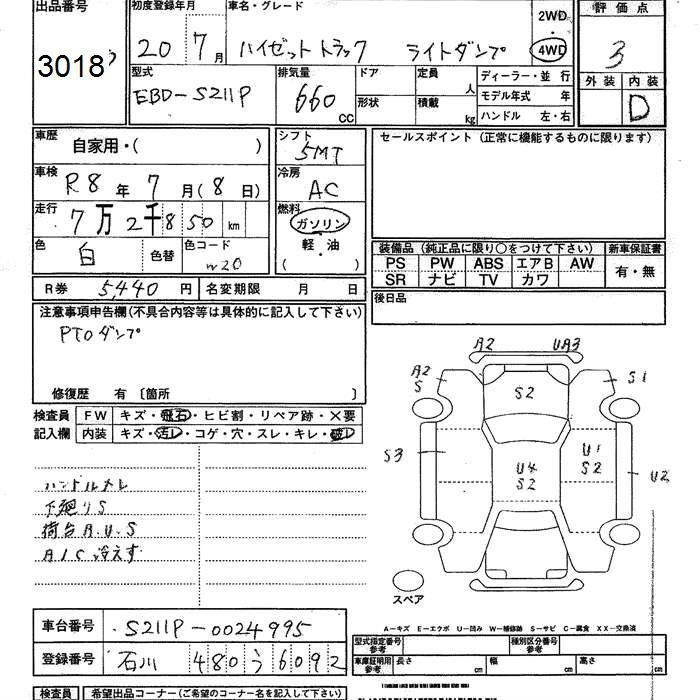 出品番号 初度登録年月 車名・グレード 2WD 評価点
3018 20 7月 ハイゼットトラック ライトダンプ 4WD 3
型式 排気量 ドア 定員 人 ディーラー・並行 外装 内装
EBD-S211P 660 CC 形状 積載 kg モデル年式 年 D
ハンドル 左・右
車歴 自家用・( ) シフト 5MT セールスポイント (正常に機能するものに限ります)
車検 R8年 7月(8日) 冷房 AC
走行 7万2千850km 燃料 ガソリン
色 白 色替 色コード W20 軽・油
( )
装備品 (純正品に限り○をつけて下さい) 新車保証書
PS PW ABS エアB AW 有・無
SR ナビ TV カワ
R券 5,440円 名変期限 月 日 後日品
注意事項申告欄(不具合内容等は具体的に記入して下さい)
PTOダンプ
修復歴 有 〔箇所 〕
検査員 FW キズ・飛石・ヒビ割・リペア跡・×要
記入欄 内装 キズ・汚レ・コゲ・穴・スレ・キレ・破レ
A2 UA3
A2 S S2 S1
S3 U4 S2 U1 S2 U2
ハンドルスレ
下廻りS
荷台A.U.S
A/C冷えず
スペア
A-キズ E-エクボ U-凹み W-補修跡 S-サビ C-腐食 XX-交換済
車台番号 S211P-0024995 型式指定番号 種別区分番号
登録番号 石川 480 う 6092 車庫証明用参考 長さ cm 幅 cm 高さ cm
検査員 希望出品コーナー(ご希望のコーナー名を記入して下さい)